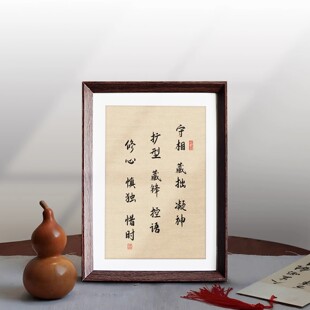 守相 藏拙 凝神
扩型 藏锋 控语
修心 慎独 惜时